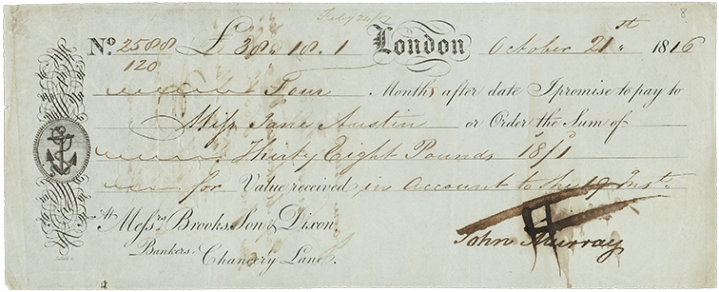 Feby 24/7
8
No. 2588 £38.18.1 London October 21st 1816
120
Four Months after date I promise to pay to
Miss Jane Austin or Order the Sum of
Thirty Eight Pounds 18/1
for Value received in account to the 19 Inst.
At Messrs. Brooks, Son & Dixon.
Bankers. Chancery Lane.
John Murray